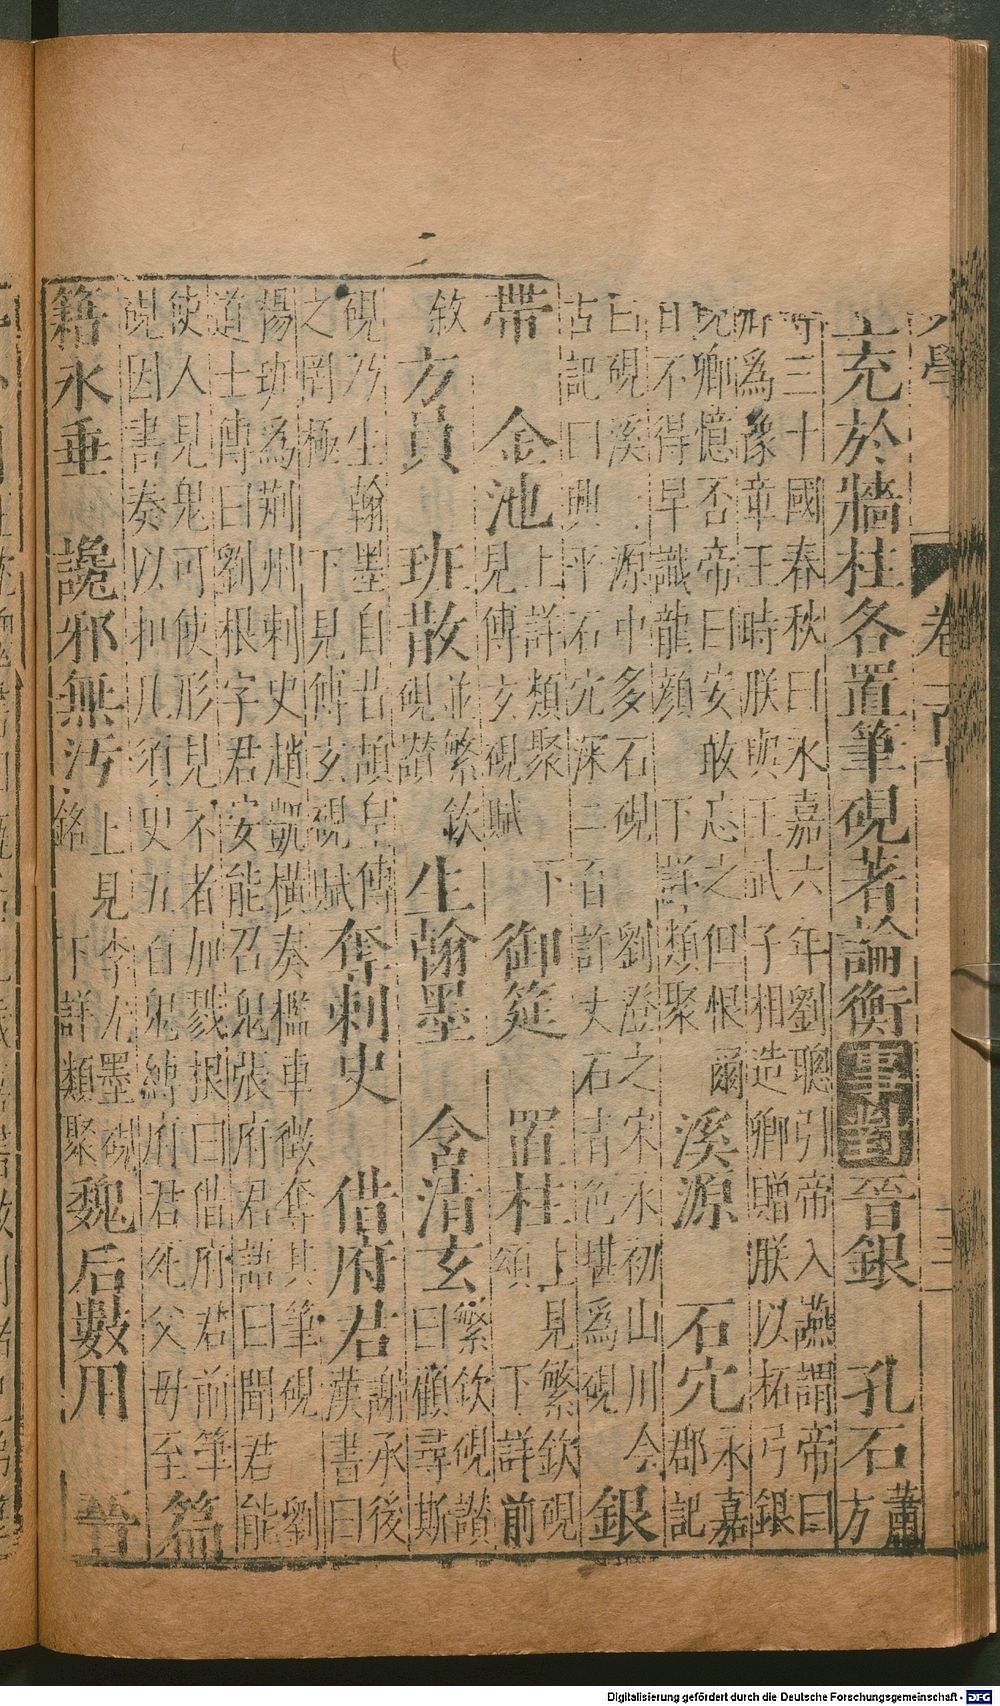 學 卷二十一 十三
王充於牆柱各置筆硯著論衡 事對 晉銀 孔石 蕭
方
等三十國春秋曰永嘉六年劉聰引帝入燕謂帝曰
為豫章王時朕與王武子相造卿贈朕以柘弓銀
硯卿憶否帝曰安敢忘之但恨爾
日不得早識龍顏 下詳類聚
溪源 石穴 永嘉
郡記
曰硯溪一源中多石硯 下 劉澄之宋永初山川今
古記曰興平石穴深二百許丈石青色堪為硯
銀
帶 金池 上詳類聚 下
見傅玄硯賦
御筵 置柱 上見繁欽硯
頌 下詳前
敘 方員 班散 並繁欽
硯讃
生翰墨 含清玄 繁欽硯讃
曰顧尋斯
硯乃生翰墨自昔頡皇傳
之罔極 下見傅玄硯賦
奪刺史 借府君 謝承後
漢書曰
楊班為荊州刺史趙凱橫奏檻車徵奪其筆硯 劉
道士傳曰劉根字君安能召鬼張府君語曰聞君能
使人見鬼可使形見不者加戮根曰借府君前筆
硯因書奏以扣几須臾五百鬼縛府君死父母至
篇
籍永垂 讒邪無汚 上見李尤墨硯
銘 下詳類聚
魏后數用 晉
Digitalisierung gefördert durch die Deutsche Forschungsgemeinschaft - DFG